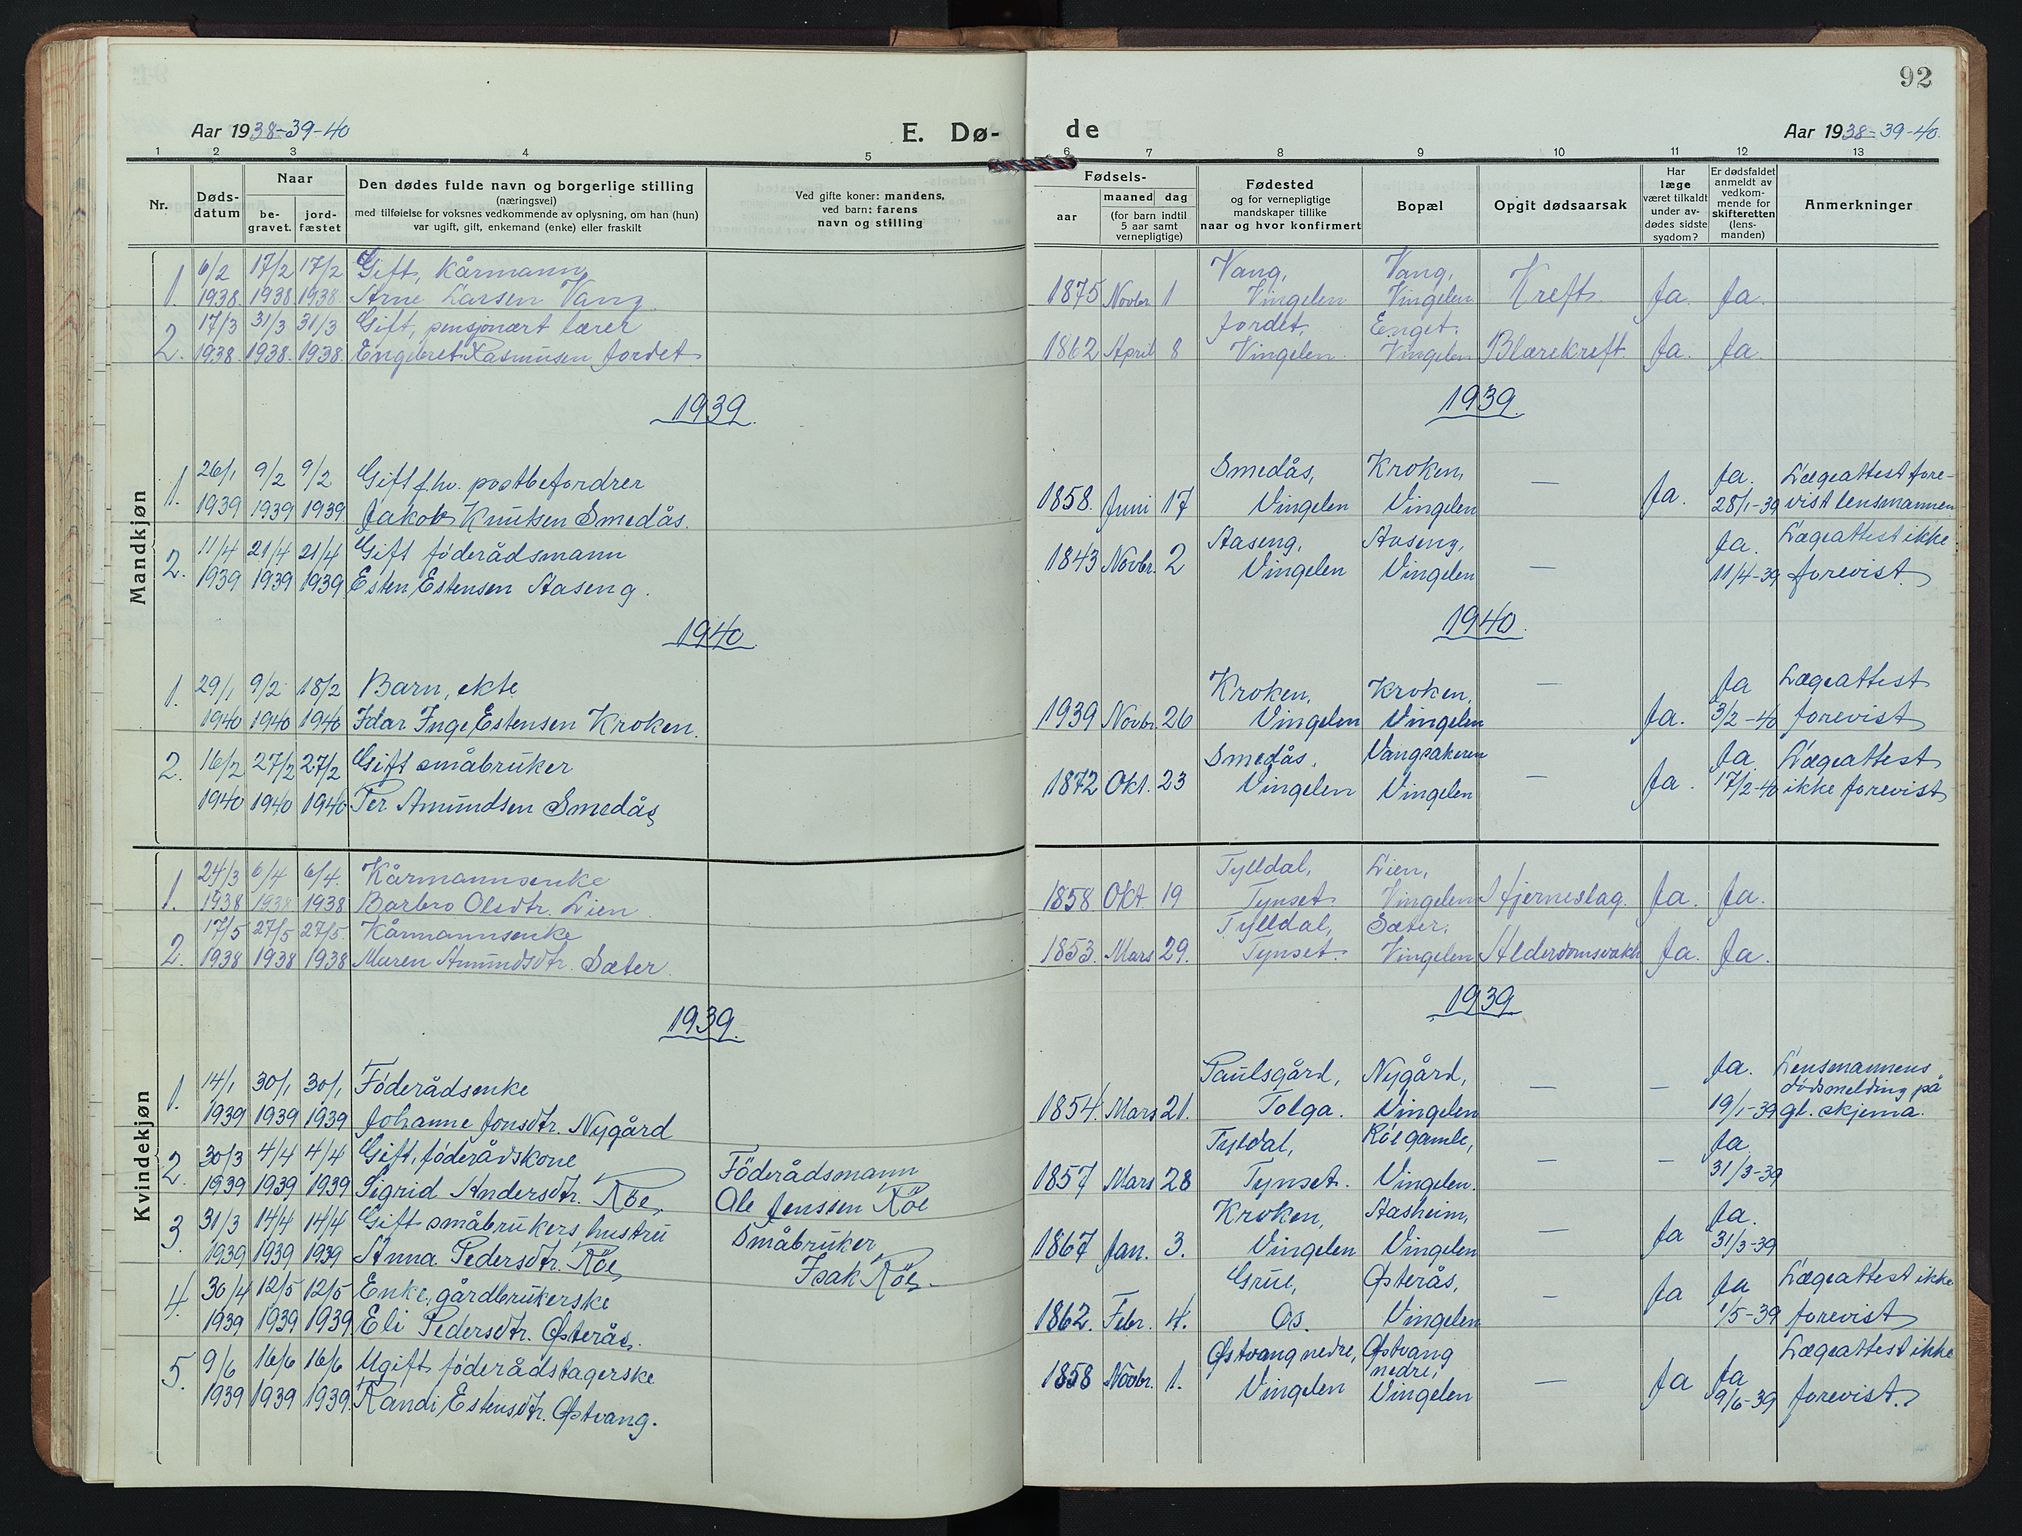 92
Aar 1938-39-40
E. Dø-
de
Aar 1938-39-40.
1 2 3 4 5
6 7 8 9 10 11 12 13
Nr.
Døds-
datum
Naar
be-
gravet.
jord-
fæstet
Den dødes fulde navn og borgerlige stilling
(næringsvei)
med tilføielse for voksnes vedkommende av oplysning, om han (hun)
var ugift, gift, enkemand (enke) eller fraskilt
Ved gifte koner: mandens,
ved barn: farens
navn og stilling
Fødsels-
aar
maaned dag
(for barn indtil
5 aar samt
vernepligtige)
Fødested
og for vernepligtige
mandskaper tillike
naar og hvor konfirmert
Bopæl
Opgit dødsaarsak
Har
læge
været tilkaldt
under av-
dødes sidste
sygdom?
Er dødsfaldet
anmeldt av
vedkom-
mende for
skifteretten
(lens-
manden)
Anmerkninger
Mandkjøn
6/2 17/2 17/2 Gift, kårmann Vang, Vang,
1. 1938. 1938 1938. Arne Larsen Vang. 1875 Novbr. 1 Vingelen Vingelen Kreft. Ja. Ja.
17/3 31/3 31/3 Gift, pensjonært lærer Jordet, Enget,
2. 1938. 1938. 1938. Engebret Rasmusen Jordet 1862 April 8 Vingelen. Vingelen Blærekreft. Ja. Ja.
1939 1939.
26/1 9/2 9/2 Gift fhv. postbefordrer Smedås, Kroken, Ja. Lægeattest fore-
1. 1939 1939 1939 Jakob Knutsen Smedås. 1858. Juni 17 Vingelen Vingelen — Ja. 28/1-39 vist lensmannen
11/4 21/4 21/4 Gift føderådsmann Aaseng, Aaseng, Ja. Lægeattest ikke
2. 1939 1939 1939 Esten Estensen Aaseng. 1843 Novbr. 2 Vingelen Vingelen — 11/4-39 forevist
1940 1940.
1. 29/1 9/2 18/2 Barn, ekte Kroken, Kroken, — Ja Lægeattest
1940 1940 1940 Idar Inge Estensen Kroken. 1939 Novbr. 26 Vingelen Vingelen Ja. 3/2-40 forevist
2. 16/2 27/2 27/2 Gift småbruker Smedås, Vangsakeren Ja. Lægeattest
1940 1940 1940 Per Amundsen Smedås 1872 Okt. 23 Vingelen Vingelen — Ja. 17/2-40 ikke forevist
Kvindekjøn
24/3 6/4 6/4. Kårmannsenke Tylldal, Lien,
1. 1938 1938 1938 Barbro Olsdtr. Lien 1858. Okt. 19 Tynset Vingelen Hjerneslag. Ja. Ja.
17/5 27/5 27/5. Kårmannsenke Tylldal, Sæter,
2. 1938 1938 1938 Maren Amundsdtr. Sæter. 1853. Mars 29. Tynset. Vingelen Alderdomsvakh Ja. Ja.
1939. 1939
1. 14/1 30/1 30/1 Føderådsenke Paulsgård, Nygård, Ja. Lensmannens
dødsmelding på
1939 1939 1939 Johanne Jonsdtr. Nygård 1854. Mars 21. Tolga. Vingelen — — 19/1-39 gl. skjema.
2. 30/3 4/4 4/4 Gift, føderådskone Føderådsmann Tyldal, Røe gamle, Ja.
1939 1939 1939 Sigrid Andersdtr. Røe Ole Jenssen Røe 1857 Mars 28 Tynset. Vingelen. — — 31/3-39
3. 31/3 14/4 14/4 Gift småbrukers hustru Småbruker Kroken, Aasheim, Ja.
1939 1939 1939 Anna Pedersdtr. Røe Isak Røe. 1867 Jan. 3. Vingelen Vingelen — Ja 31/3-39
4. 30/4 12/5 12/5 Enke, gårdbrukerske Grue, Østerås, Ja Lægeattest ikke
1939 1939 1939 Eli Pedersdtr. Østerås. 1862. Febr. 4. Os. Vingelen — Ja 1/5-39 forevist
5. 9/6 16/6 16/6 Ugift føderådstagerske Østvang nedre, Østvang nedre, Ja Lægeattest ikke
1939 1939 1939. Randi Estensdtr. Østvang. 1858 Novbr. 1. Vingelen Vingelen — Ja 9/6-39 forevist.